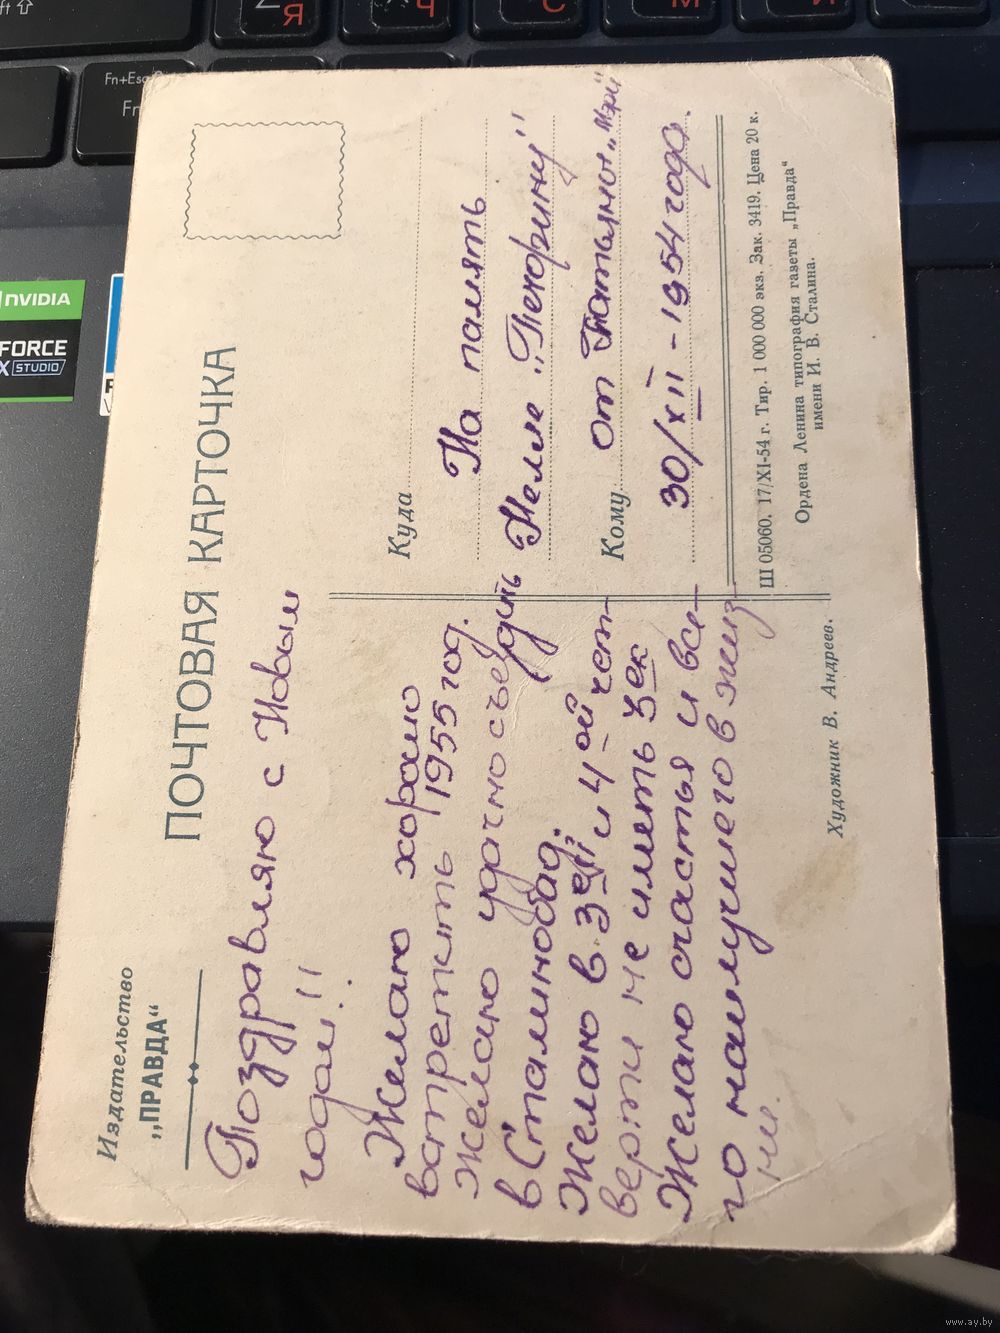 Издательство
„ПРАВДА“
ПОЧТОВАЯ КАРТОЧКА
Поздравляю с Новым
годом!!
Желаю хорошо
встретить 1955 год.
Желаю удачно съездить
в Сталинобад.
Желаю в 3ей и 4ой чет-
верти не иметь 3ек
Желаю счастья и все-
го наилучшего в жиз-
ни.
Куда
На память
Нелле „Печорину"
Кому
от Татьяны „Мэри"
30/XII - 1954 года.
Ш 05060. 17/XI-54 г. Тир. 1 000 000 экз. Зак. 3419. Цена 20 к.
Ордена Ленина типография газеты „Правда“
имени И. В. Сталина.
Художник В. Андреев.
NVIDIA
FORCE
STUDIO
Fn+Esc
Fn
ft
Я
Ч
С
М
И
www.ay.by